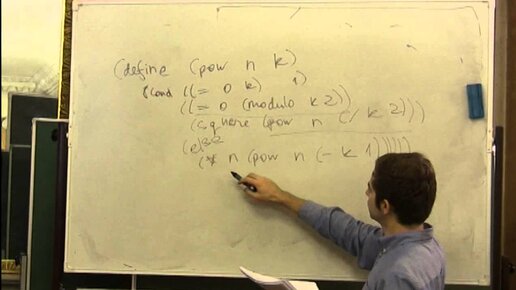 (define (pow n k)
(cond ((= 0 k) 1)
((= 0 (modulo k 2))
(square (pow n (/ k 2)))
(else
(* n (pow n (- k 1)))))